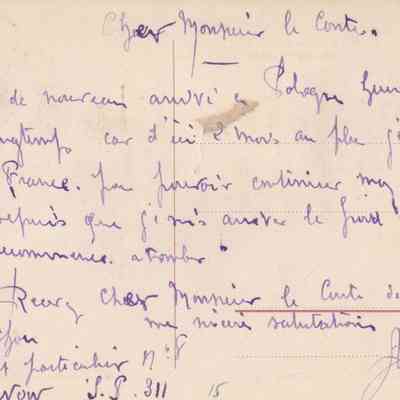 Cher Monsieur le Comte.
de nouveau arrivé en Pologne
ngtemps, car d'ici 2 mois au plus je
France. pour pouvoir continuer
depuis que je suis arrivé le froid
recommence a tomber
Recevez cher Monsieur le Comte de
mes sincères salutations
t particulier N° 8
S.P. 311 15